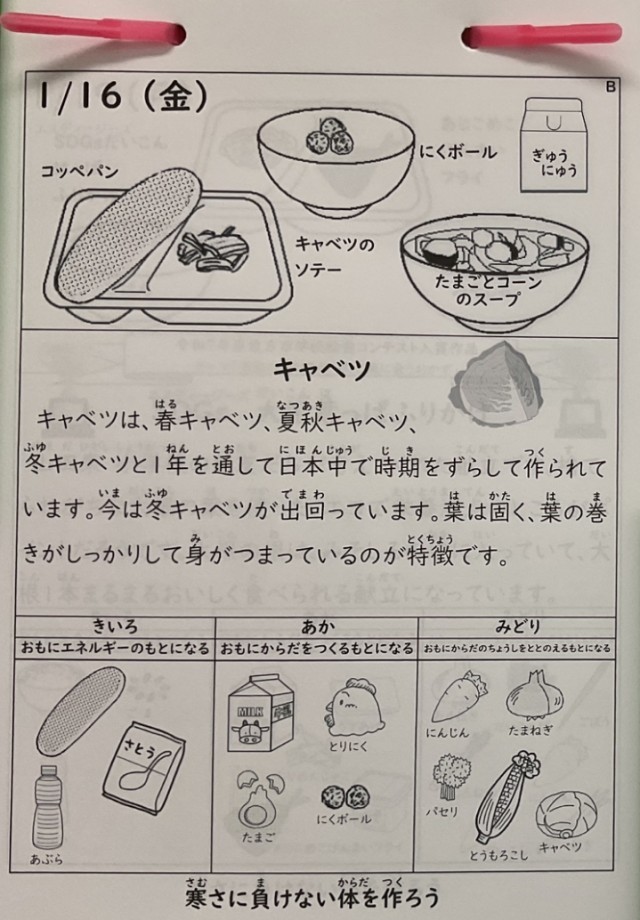 B
1/16（金）
コッペパン
にくボール
ぎゅう
にゅう
キャベツの
ソテー
たまごとコーン
のスープ
キャベツ
キャベツは、春キャベツ、夏秋キャベツ、
冬キャベツと1年を通して日本中で時期をずらして作られて
います。今は冬キャベツが出回っています。葉は固く、葉の巻
きがしっかりして身がつまっているのが特徴です。
きいろ
おもにエネルギーのもとになる
さとう
あぶら
あか
おもにからだをつくるもとになる
MILK
とりにく
たまご
にくボール
みどり
おもにからだのちょうしをととのえるもとになる
にんじん
たまねぎ
パセリ
とうもろこし
キャベツ
寒さに負けない体を作ろう